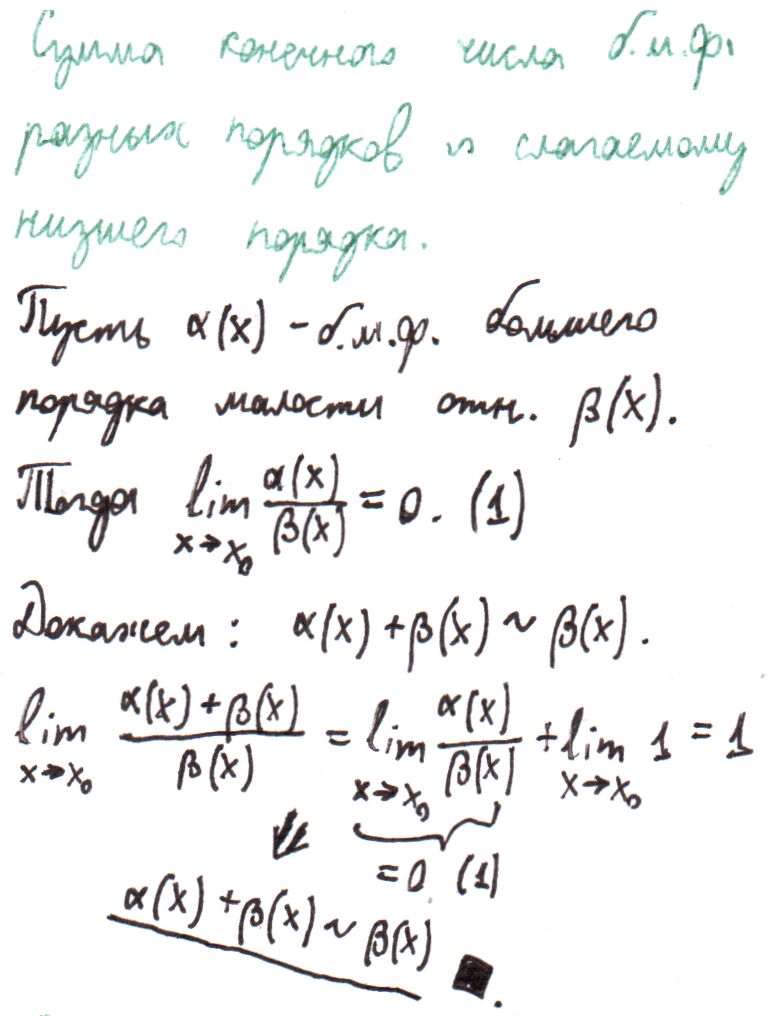 Сумма конечного числа б.м.ф.
разных порядков ~ слагаемому
низшего порядка.
Пусть α(x) - б.м.ф. большего
порядка малости отн. β(x).
Тогда lim x→x₀ α(x)/β(x) = 0. (1)
Докажем: α(x) + β(x) ~ β(x).
lim x→x₀ (α(x) + β(x))/β(x) = lim x→x₀ α(x)/β(x) + lim x→x₀ 1 = 1
⇓ = 0 (1)
α(x) + β(x) ~ β(x) ■.